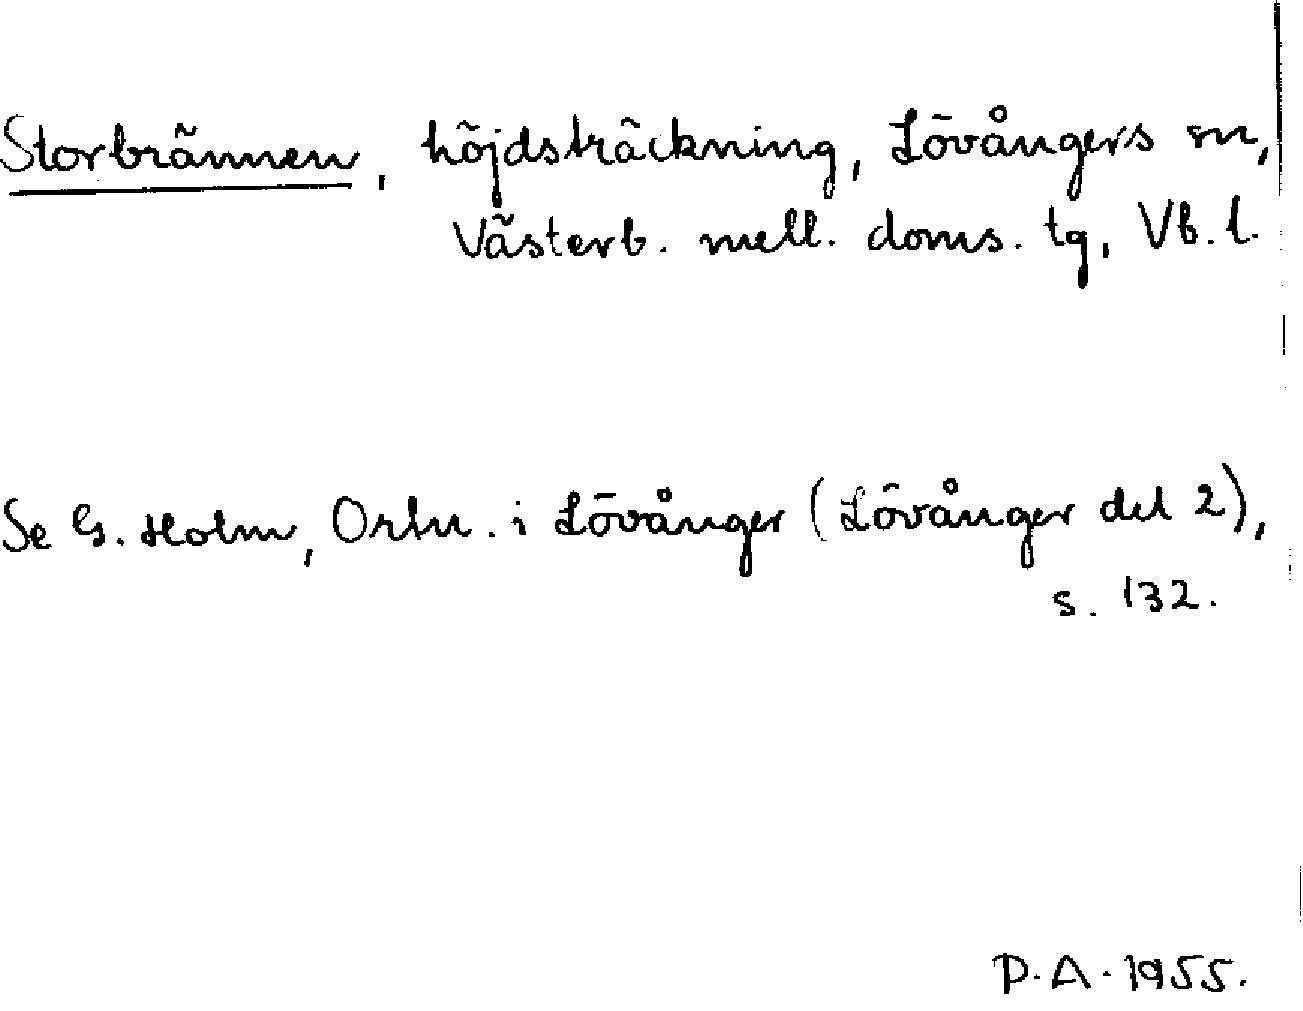 Storbrännen, höjdsträckning, Lövångers sn,
Västerb. mell. doms. tg, Vb. l.
Se G. Holm, Ortn. i Lövånger (Lövånger del 2),
s. 132.
P.A. 1955.